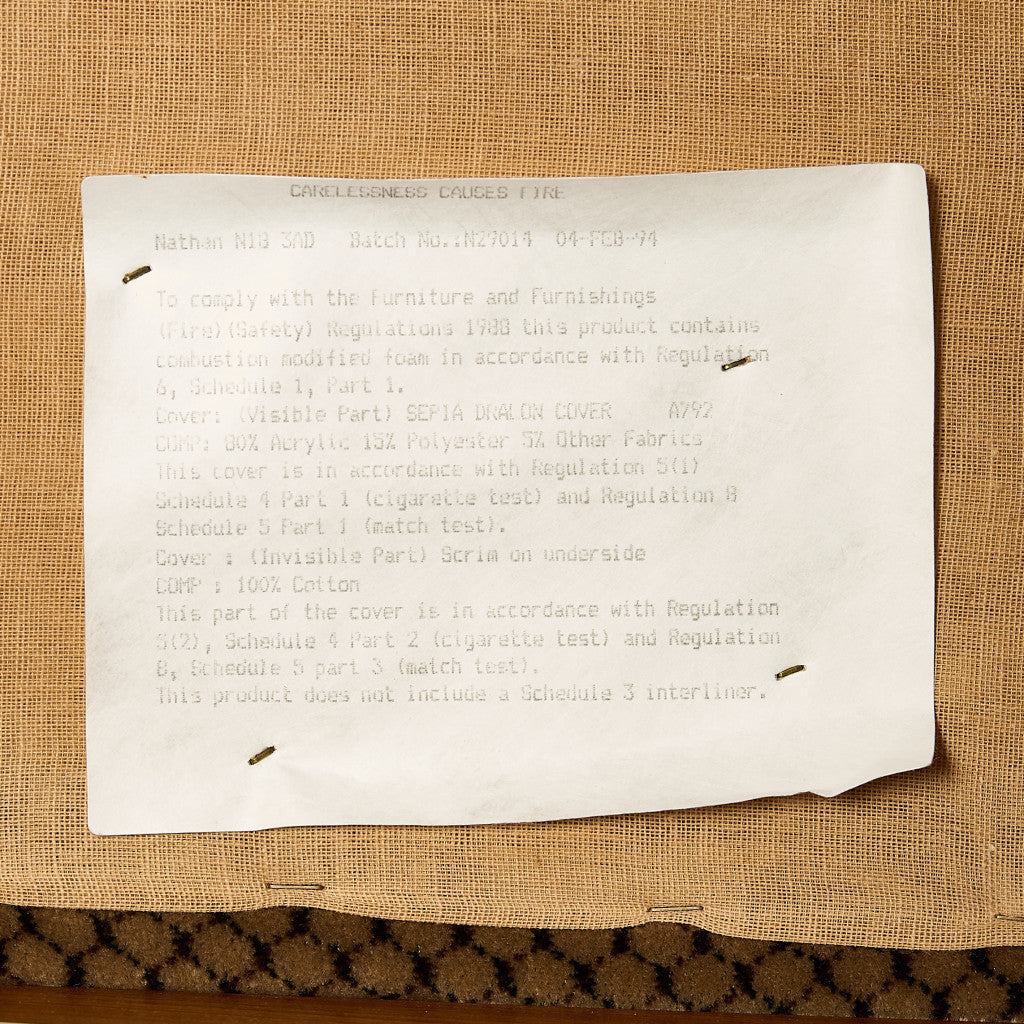 CARELESSNESS CAUSES FIRE
Nathan N18 3AD Batch No.:N29014 04-FEB-94
To comply with the Furniture and Furnishings
(Fire)(Safety) Regulations 1988 this product contains
combustion modified foam in accordance with Regulation
6, Schedule 1, Part 1.
Cover: (Visible Part) SEPIA DRALON COVER A792
COMP: 80% Acrylic 15% Polyester 5% Other Fabrics
This cover is in accordance with Regulation 5(1)
Schedule 4 Part 1 (cigarette test) and Regulation 8
Schedule 5 Part 1 (match test).
Cover : (Invisible Part) Scrim on underside
COMP : 100% Cotton
This part of the cover is in accordance with Regulation
5(2), Schedule 4 Part 2 (cigarette test) and Regulation
8, Schedule 5 part 3 (match test).
This product does not include a Schedule 3 interliner.